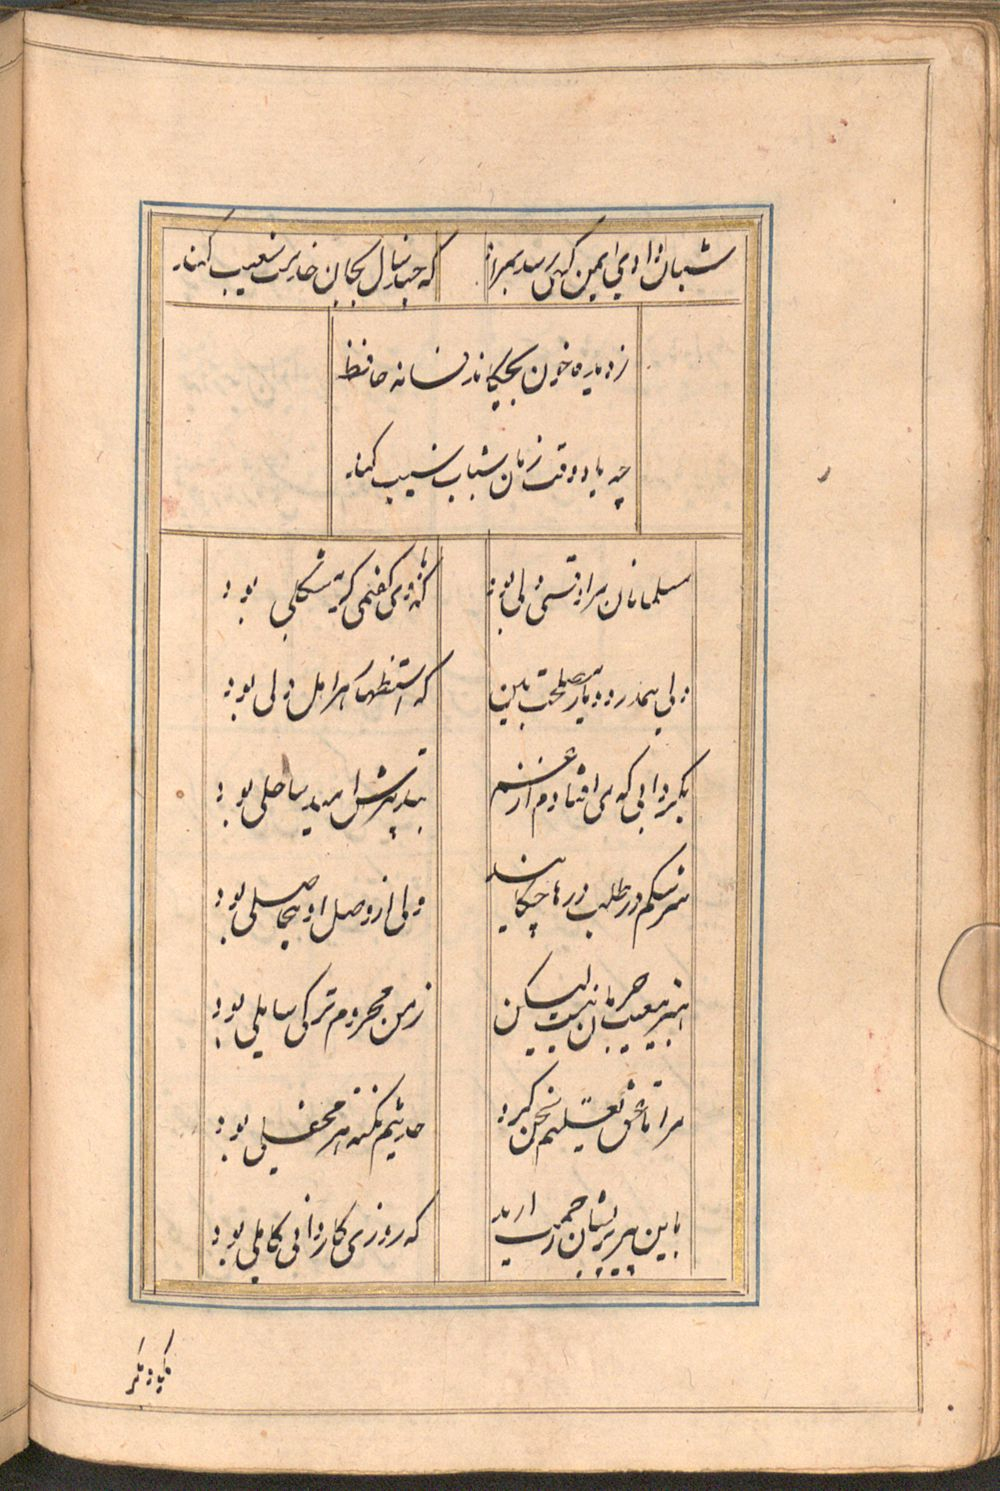 شبان وادی ایمن گهی رسد بمراد که چند سال بجان خدمت شعیب کند
ز دیده خون بچکاند فسانه حافظ
چه یاد وقت زمان شباب شیب کند
مسلمانان مرا وقتی دلی بود که با وی گفتمی گر مشکلی بود
دلی همدرد و یار مصلحت بین که استظهار هر اهل دلی بود
بگردابی که می افتادم از غم بتدبیرش امید ساحلی بود
سرشکم در طلب درها چکاند ولی از وصل او بیحاصلی بود
هنر بیعیب حرمان نیست لیکن ز من محروم تر کی سایلی بود
مرا تا عشق تعلیم سخن کرد حدیثم نکته هر محفلی بود
باین پیر پریشان رحمت ارید که روزی کاردانی کاملی بود